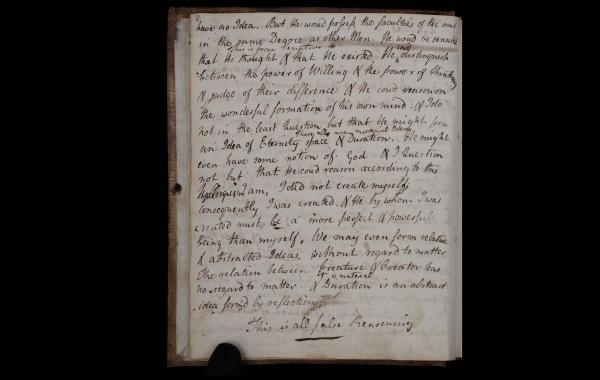 have no Idea. But He woud possess the faculties of the soul
in the same Degree as other Men. He woud be sensible
This is from Sensation
that He thought & that He existed. He and distinguish
between the power of Willing & the power of Thinking
& judge of their difference & He coud reason on
the wonderful formation of his own mind. & I do
not in the least Question but that He might form
There allso are material Ideas
an Idea of Eternity space & Duration. He might
even have some notion of God. & I Question
not but that He coud reason according to this
I am, I did not create myself;
consequently I was created. & He by whom I was
created must be a more perfect & powerful
being than myself. We may even form relative
& abstracted Ideas without regard to matter
The relation between Creature & Creator has
is material
no regard to matter. & Duration is an abstract
idea form'd by reflection,
This is all false Reasoning